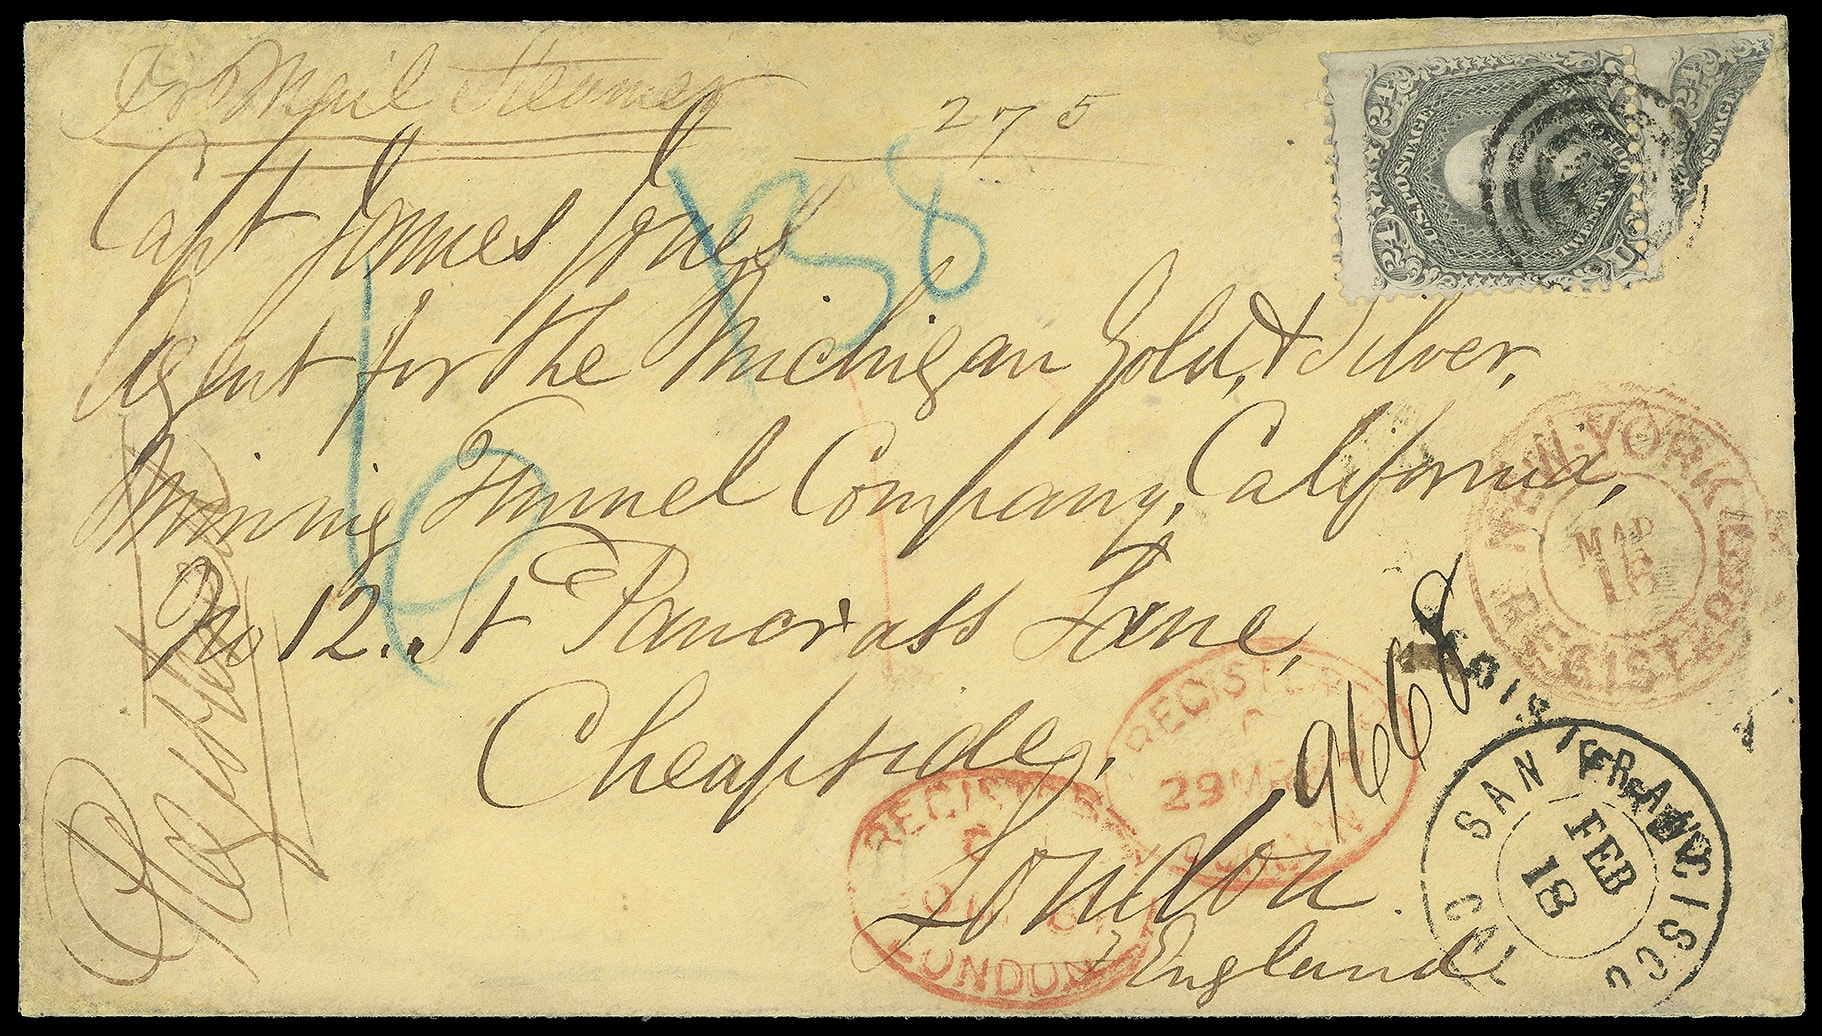 Pr Mail Steamer
275
Capt James Jones
Agent for the Michigan Gold, & Silver,
Mining Tunnel Company, California,
No 12. St Pancrass Lane,
Cheapside,
London
England
Registered
9668
138
6
24 24
U.S. POSTAGE
TWENTY
POSTAGE
NEW-YORK
MAR
16
REGISTERED
REGISTERED
29 MR 67
REGISTERED
LONDON
SAN FRANCISCO
FEB
18
CAL